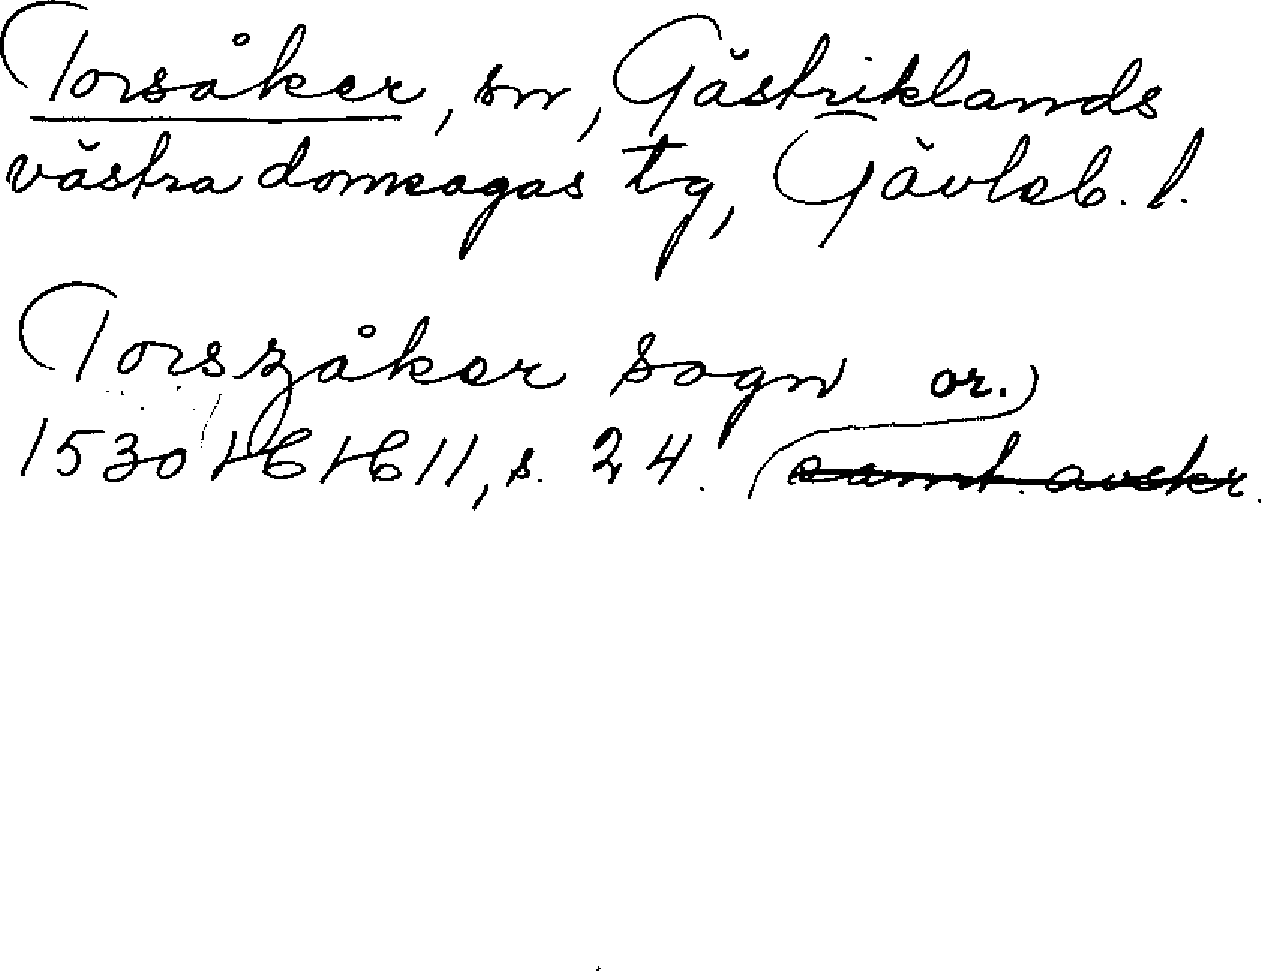 Torsåker, sn, Gästriklands
västra domsagas tg, Gävleb. l.
Torszåker sogn or.
1530 11, s. 24. (samt. avskr.